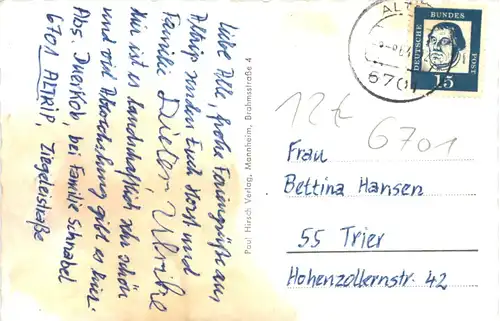 Liebe Alle, frohe Feriengrüße aus
Altrip senden Euch Horst und
Familie Dieter, Ulrike
Hier ist es landschaftlich sehr schön
und viel Abwechslung gibt es hier.
Abs. bei Familie Schnabel
6701 ALTRIP, Ziegeleistraße
Paul Hirsch Verlag, Mannheim, Brahmsstraße 4
ALTRIP
6701
DEUTSCHE BUNDESPOST
15
12€
6701
Frau
Bettina Hansen
55 Trier
Hohenzollernstr. 42